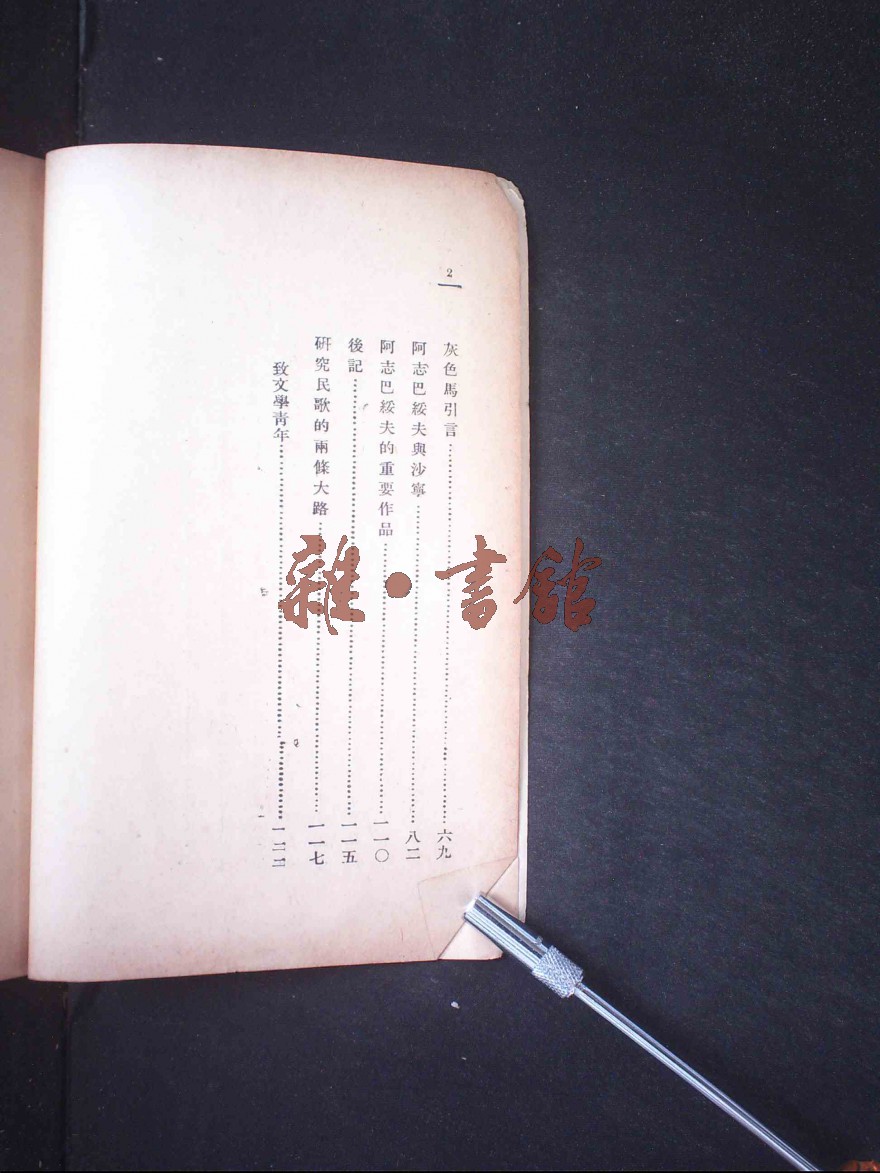 2
灰色馬引言……六九
阿志巴綏夫與沙寧……八二
阿志巴綏夫的重要作品……一一〇
後記……一一五
研究民歌的兩條大路……一一七
致文學青年……一二二
雜·書館